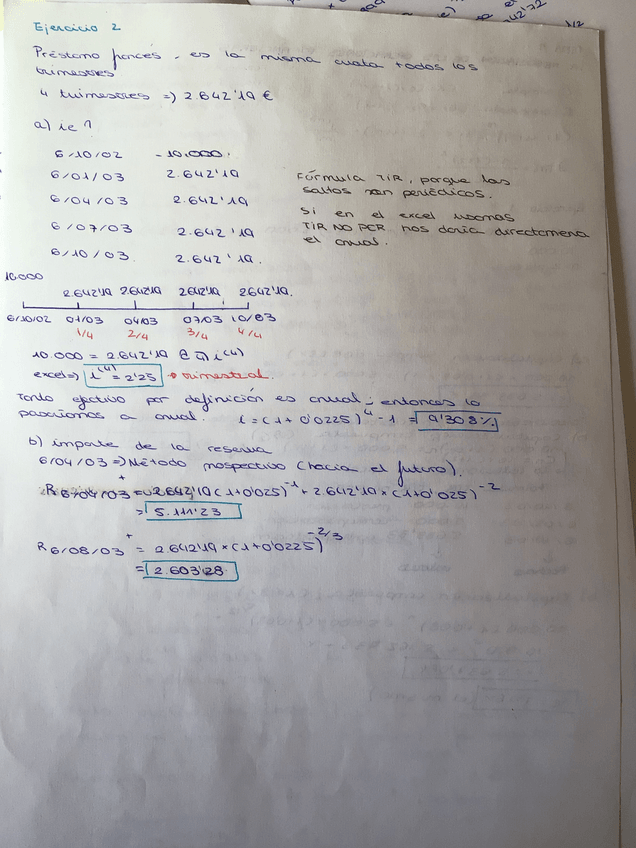 Ejercicio 2
Préstamo francés, es la misma cuota todos los
trimestres
4 trimestres => 2.642'19 €
a) ie ?
6/10/02 - 10.000.
6/01/03 2.642'19
6/04/03 2.642'19
6/07/03 2.642'19
6/10/03. 2.642'19.
Fórmula TIR, porque los
saltos son periódicos.
Si en el excel usamos
TIR NO PER nos daría directamente
el anual.
10.000
2.642'19 2.642'19 2.642'19 2.642'19.
6/10/02 01/03 04/03 07/03 10/03
1/4 2/4 3/4 4/4
10.000 = 2.642'19 a 4 i(4)
excel => i(4) = 2'25 → trimestral.
Tanto efectivo por definición es anual, entonces lo
pasamos a anual. i = (1 + 0'0225)^4 - 1 = 9'308%
b) importe de la reserva
6/04/03 => Método prospectivo (hacia el futuro).
R 6/04/03 + = 2.642'19 (1+0'025)^-1 + 2.642'19 × (1+0'025)^-2
= 5.111'23
R 6/08/03 + = 2.642'19 × (1+0'0225)^-2/3
= 2.603'28